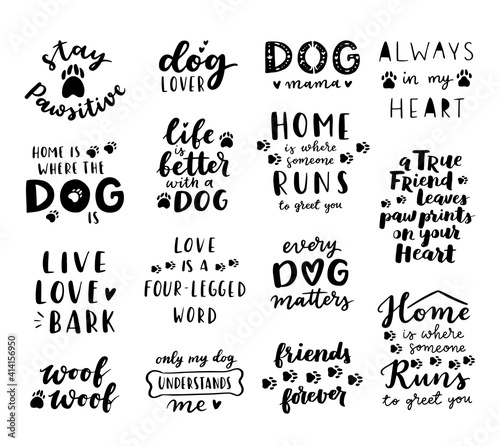 stay
Pawsitive
dog
LOVER
DOG
mama
ALWAYS
in my
HEART
HOME IS
WHERE THE
DOG
IS
life
is
better
with a
DOG
HOME
is where
someone
RUNS
to greet you
a True
Friend
leaves
paw prints
on your
Heart
LIVE
LOVE
BARK
LOVE
IS A
FOUR-LEGGED
WORD
every
DOG
matters
Home
is where
someone
Runs
to greet you
woof
woof
only my dog
UNDERSTANDS
me
friends
forever
Adobe Stock | #414156950